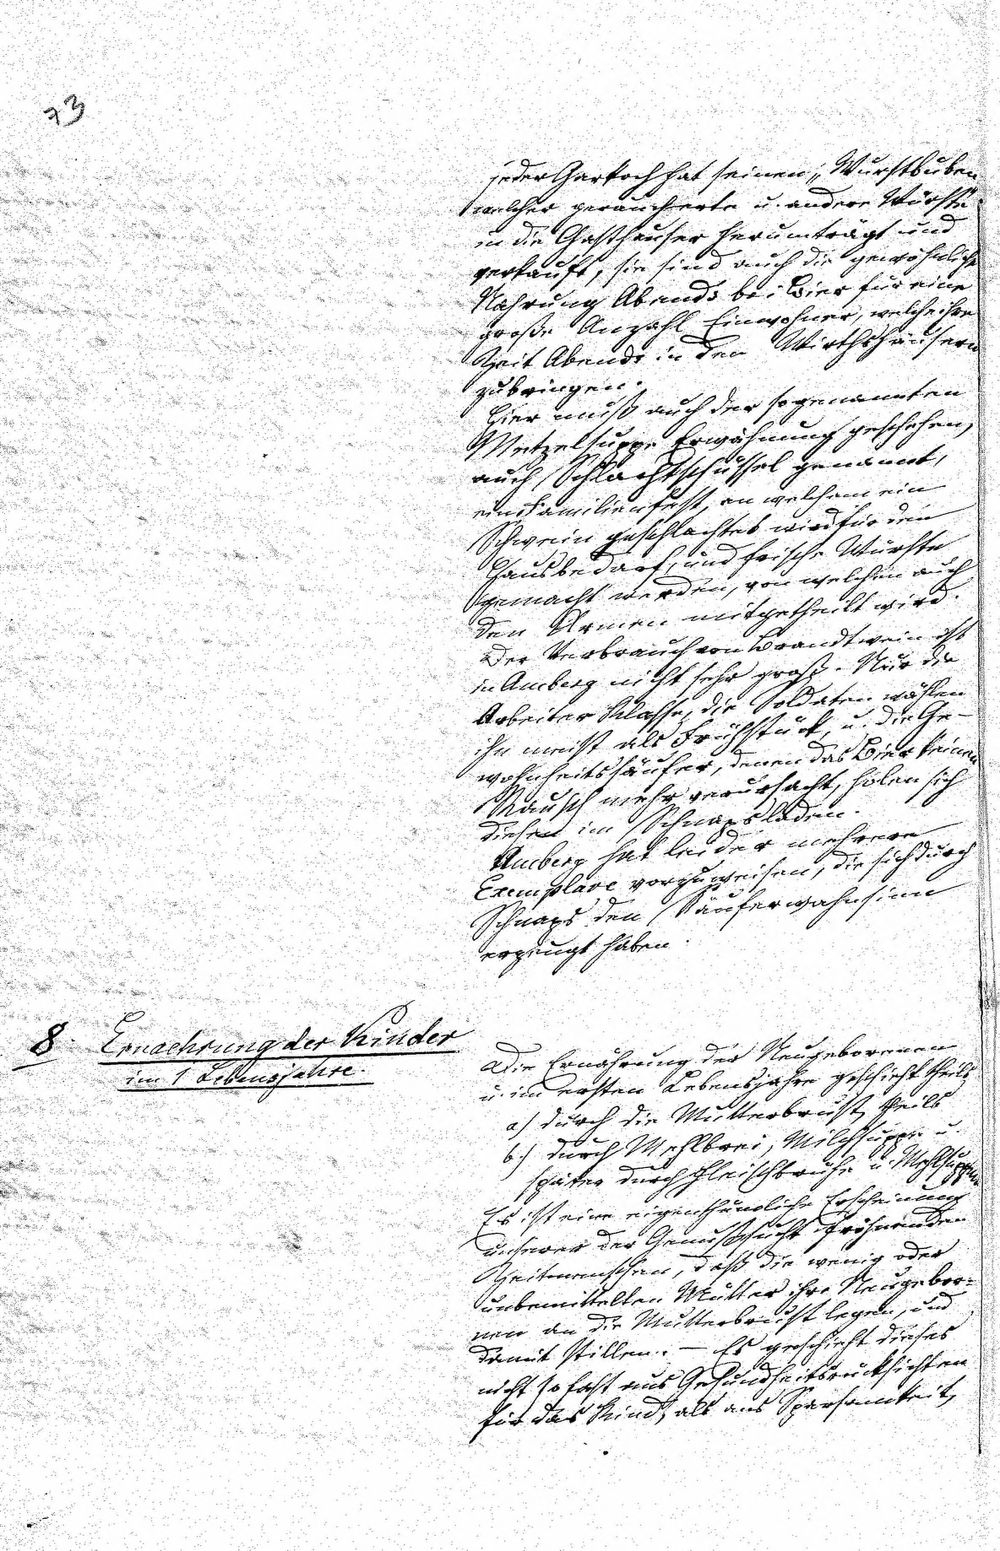 73
jeder Garkoch hat seinen „Wurstbuben
welcher geraucherte u. andere Würste
in die Gasthäuser herumträgt und
verkauft, sie sind auch die gewöhnliche
Nahrung Abends bei Bier für eine
große Anzahl Einwohner, welche ihre
Zeit Abends in den Wirthshäusern
zubringen.
Hier muß auch der sogenannten
Metzelsuppe Erwähnung geschehen,
auch Schlachtschüssel genannt,
ein Familienfest, an welchem ein
Schwein geschlachtet wird für den
Hausbedarf, und frische Würste
gemacht werden, von welchen auch
den Armen mitgetheilt wird.
Der Verbrauch von Brandtwein ist
in Amberg nicht sehr groß. Nur die
Arbeiter Klasse, die Soldaten wählen
ihn meist als Frühstück, u. die Ge-
wohnheitssäufer, denen das Bier keinen
Rausch mehr verursacht, holen sich
diesen im Schnapsladen.
Amberg hat leider mehrere
Exemplare vorzuweisen, die sich durch
Schnaps den Säuferwahnsinn
erzeugt haben.
8. Ernaehrung der Kinder
im 1 Lebensjahre.
Die Ernährung der Neugeborenen
u. im ersten Lebensjahre geschieht theils
a) durch die Mutterbrust, theils
b.) durch Mehlbrei, Milchsuppe u.
später durch Fleischbrühe u. Mehlsuppen
Es ist eine eigenthümliche Erscheinung
unserer der Genußsucht fröhnenden
Zeitmenschen, daß die wenig oder
unbemittelten Mütter ihre Neugebor=
nen an die Mutterbrust legen, und
damit stillen. — Es geschieht dieses
nicht so fast aus Gesundheitsrücksichten
für das Kind, als aus Sparsamkeit,